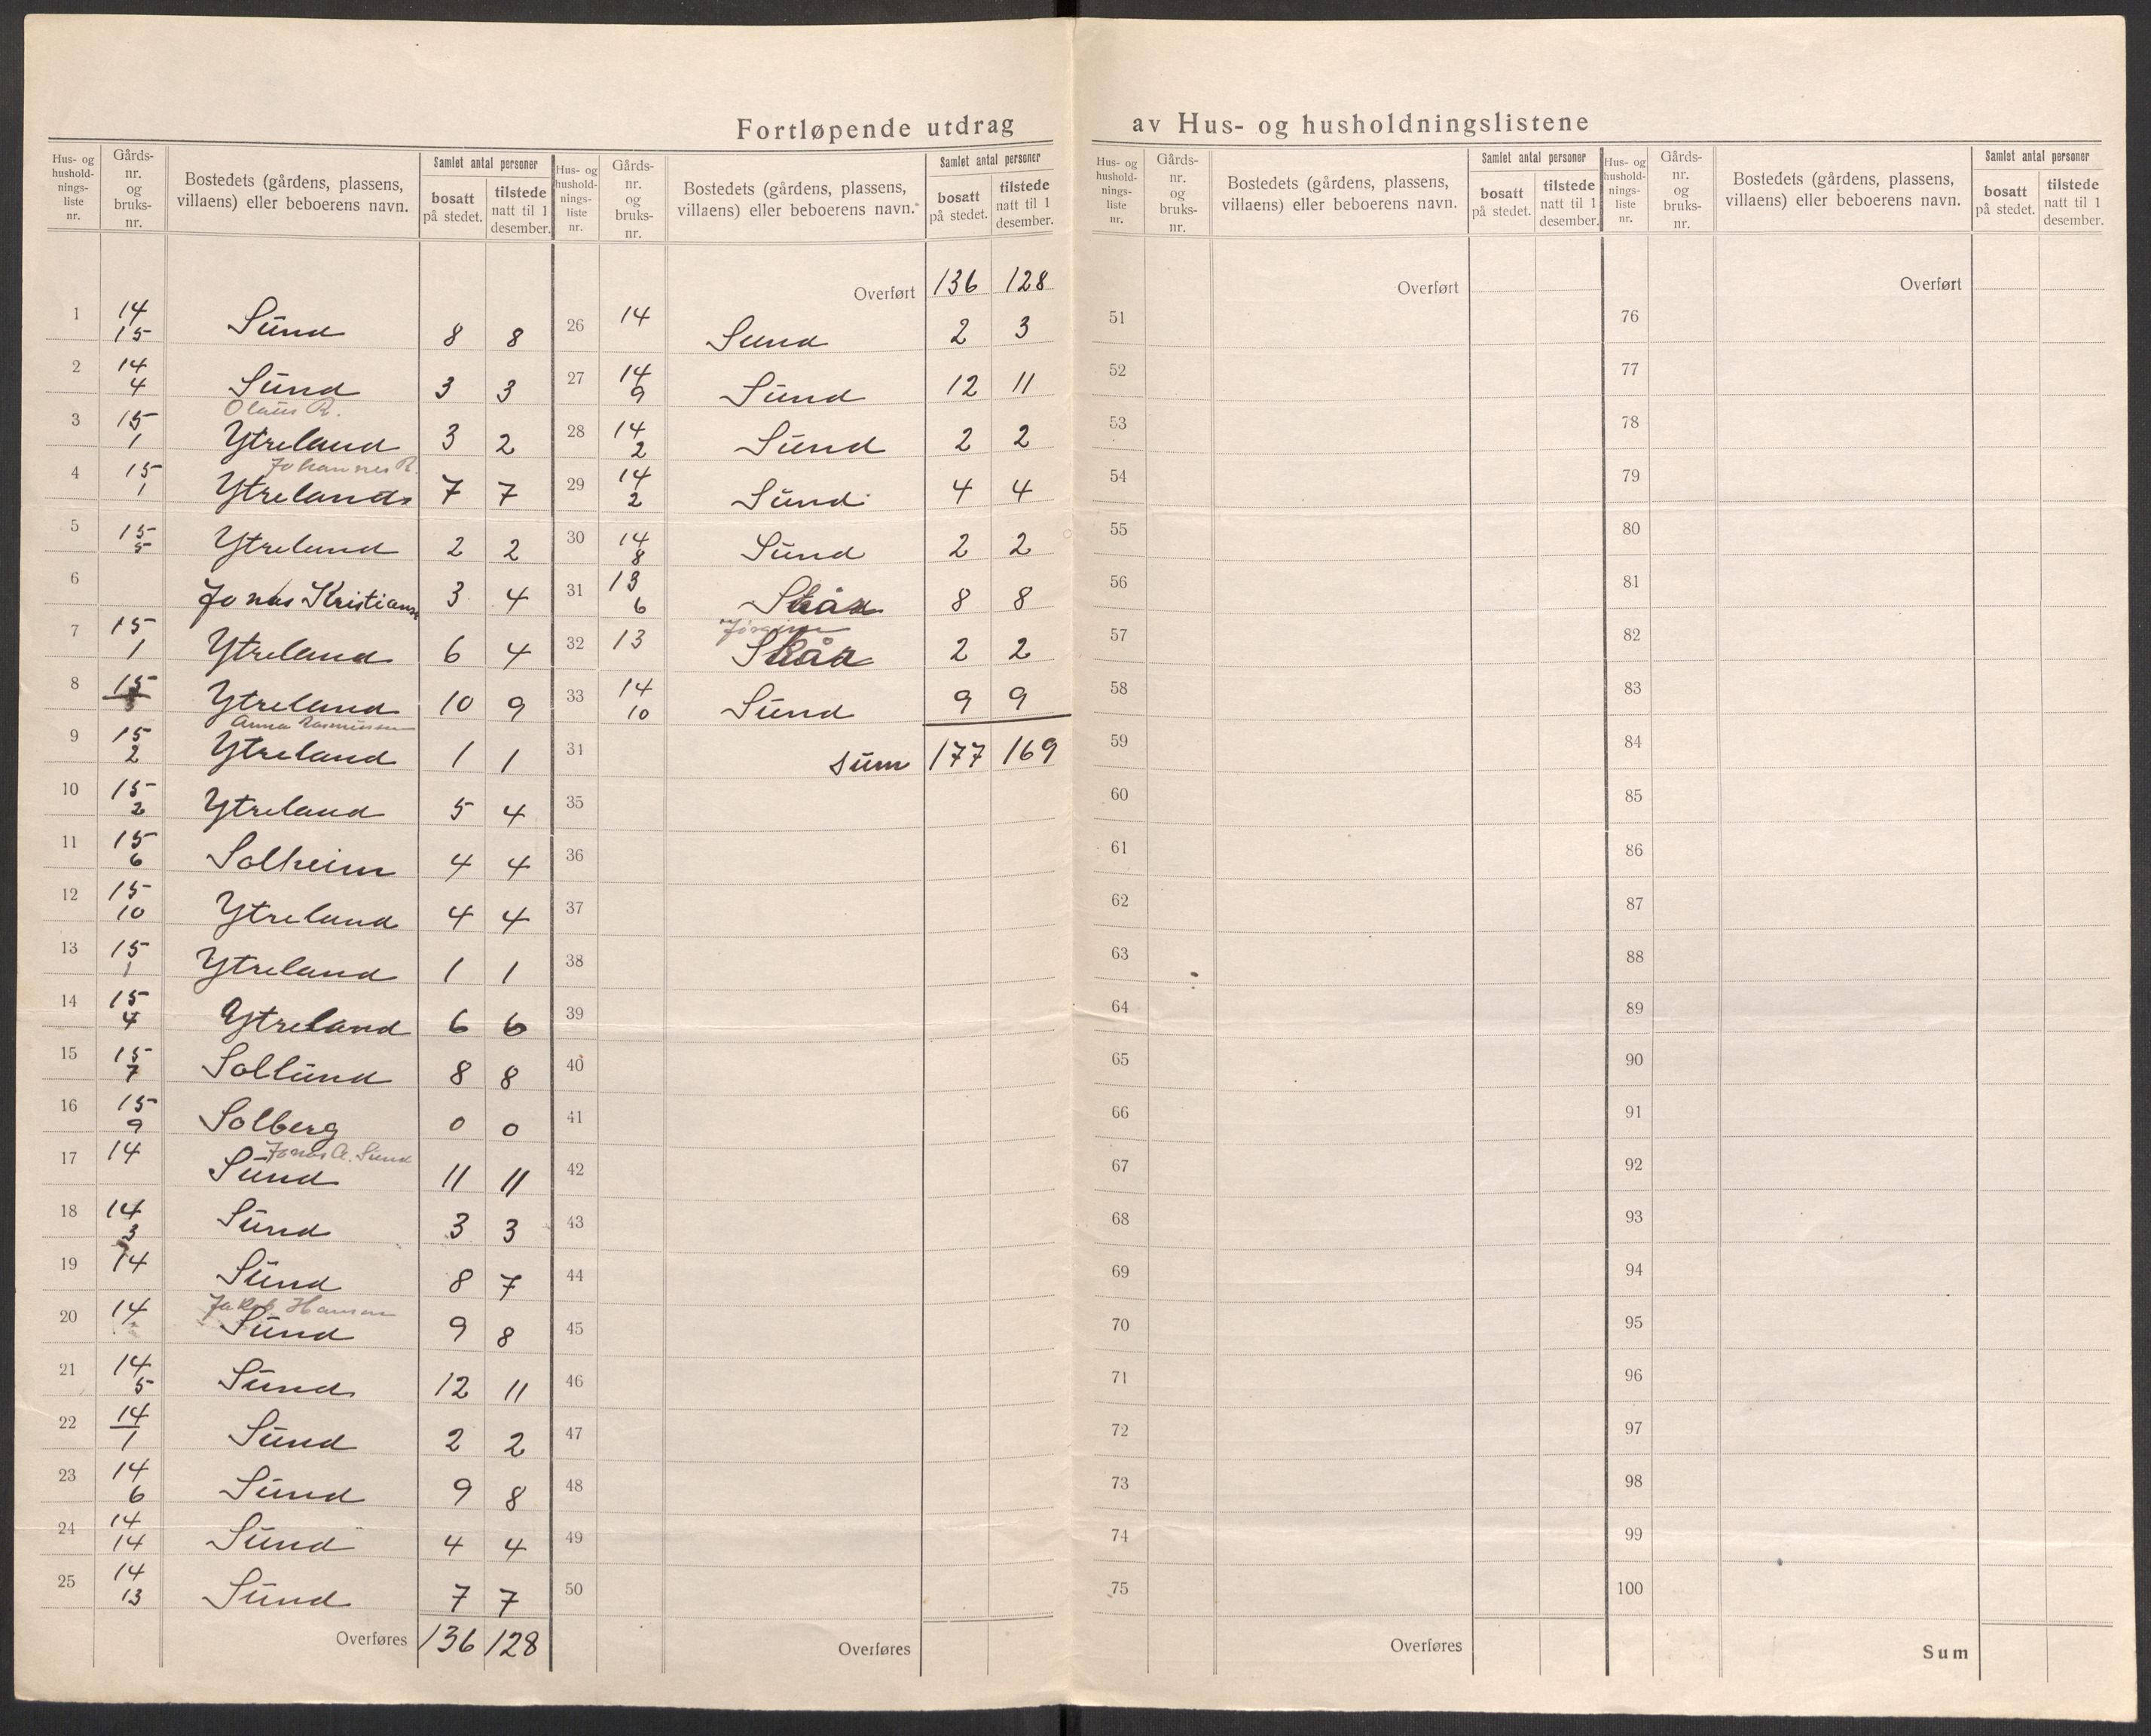 Fortløpende utdrag av Hus- og husholdningslistene
Hus- og hushold-nings-liste nr. Gårds-nr. og bruks-nr. Bostedets (gårdens, plassens, villaens) eller beboerens navn. Samlet antal personer bosatt på stedet. tilstede natt til 1 desember.
1 14 15 Sund 8 8
2 14 4 Sund 3 3
Olaus R.
3 15 1 Ytreland 3 2
Johannes R.
4 15 1 Ytreland 7 7
5 15 5 Ytreland 2 2
6 Jonas Kristiansen 3 4
7 15 1 Ytreland 6 4
8 15 Ytreland 10 9
Anna Rasmussen
9 15 2 Ytreland 1 1
10 15 2 Ytreland 5 4
11 15 6 Solheim 4 4
12 15 10 Ytreland 4 4
13 15 1 Ytreland 1 1
14 15 4 Ytreland 6 6
15 15 7 Sollund 8 8
16 15 9 Solberg 0 0
Jonas A. Sund
17 14 Sund 11 11
18 14 3 Sund 3 3
19 14 Sund 8 7
Jakob Hansen
20 14 Sund 9 8
21 14 5 Sund 12 11
22 14 1 Sund 2 2
23 14 6 Sund 9 8
24 14 14 Sund 4 4
25 14 13 Sund 7 7
Overføres 136 128
Hus- og hushold-nings-liste nr. Gårds-nr. og bruks-nr. Bostedets (gårdens, plassens, villaens) eller beboerens navn. Samlet antal personer bosatt på stedet. tilstede natt til 1 desember.
Overført 136 128
26 14 Sund 2 3
27 14 9 Sund 12 11
28 14 2 Sund 2 2
29 14 2 Sund 4 4
30 14 8 Sund 2 2
31 13 6 8 8
32 13 2 2
33 14 10 Sund 9 9
34 Sum 177 169
35
36
37
38
39
40
41
42
43
44
45
46
47
48
49
50
Overføres
Hus- og hushold-nings-liste nr. Gårds-nr. og bruks-nr. Bostedets (gårdens, plassens, villaens) eller beboerens navn. Samlet antal personer bosatt på stedet. tilstede natt til 1 desember.
Overført
51
52
53
54
55
56
57
58
59
60
61
62
63
64
65
66
67
68
69
70
71
72
73
74
75
Overføres
Hus- og hushold-nings-liste nr. Gårds-nr. og bruks-nr. Bostedets (gårdens, plassens, villaens) eller beboerens navn. Samlet antal personer bosatt på stedet. tilstede natt til 1 desember.
Overført
76
77
78
79
80
81
82
83
84
85
86
87
88
89
90
91
92
93
94
95
96
97
98
99
100
Sum